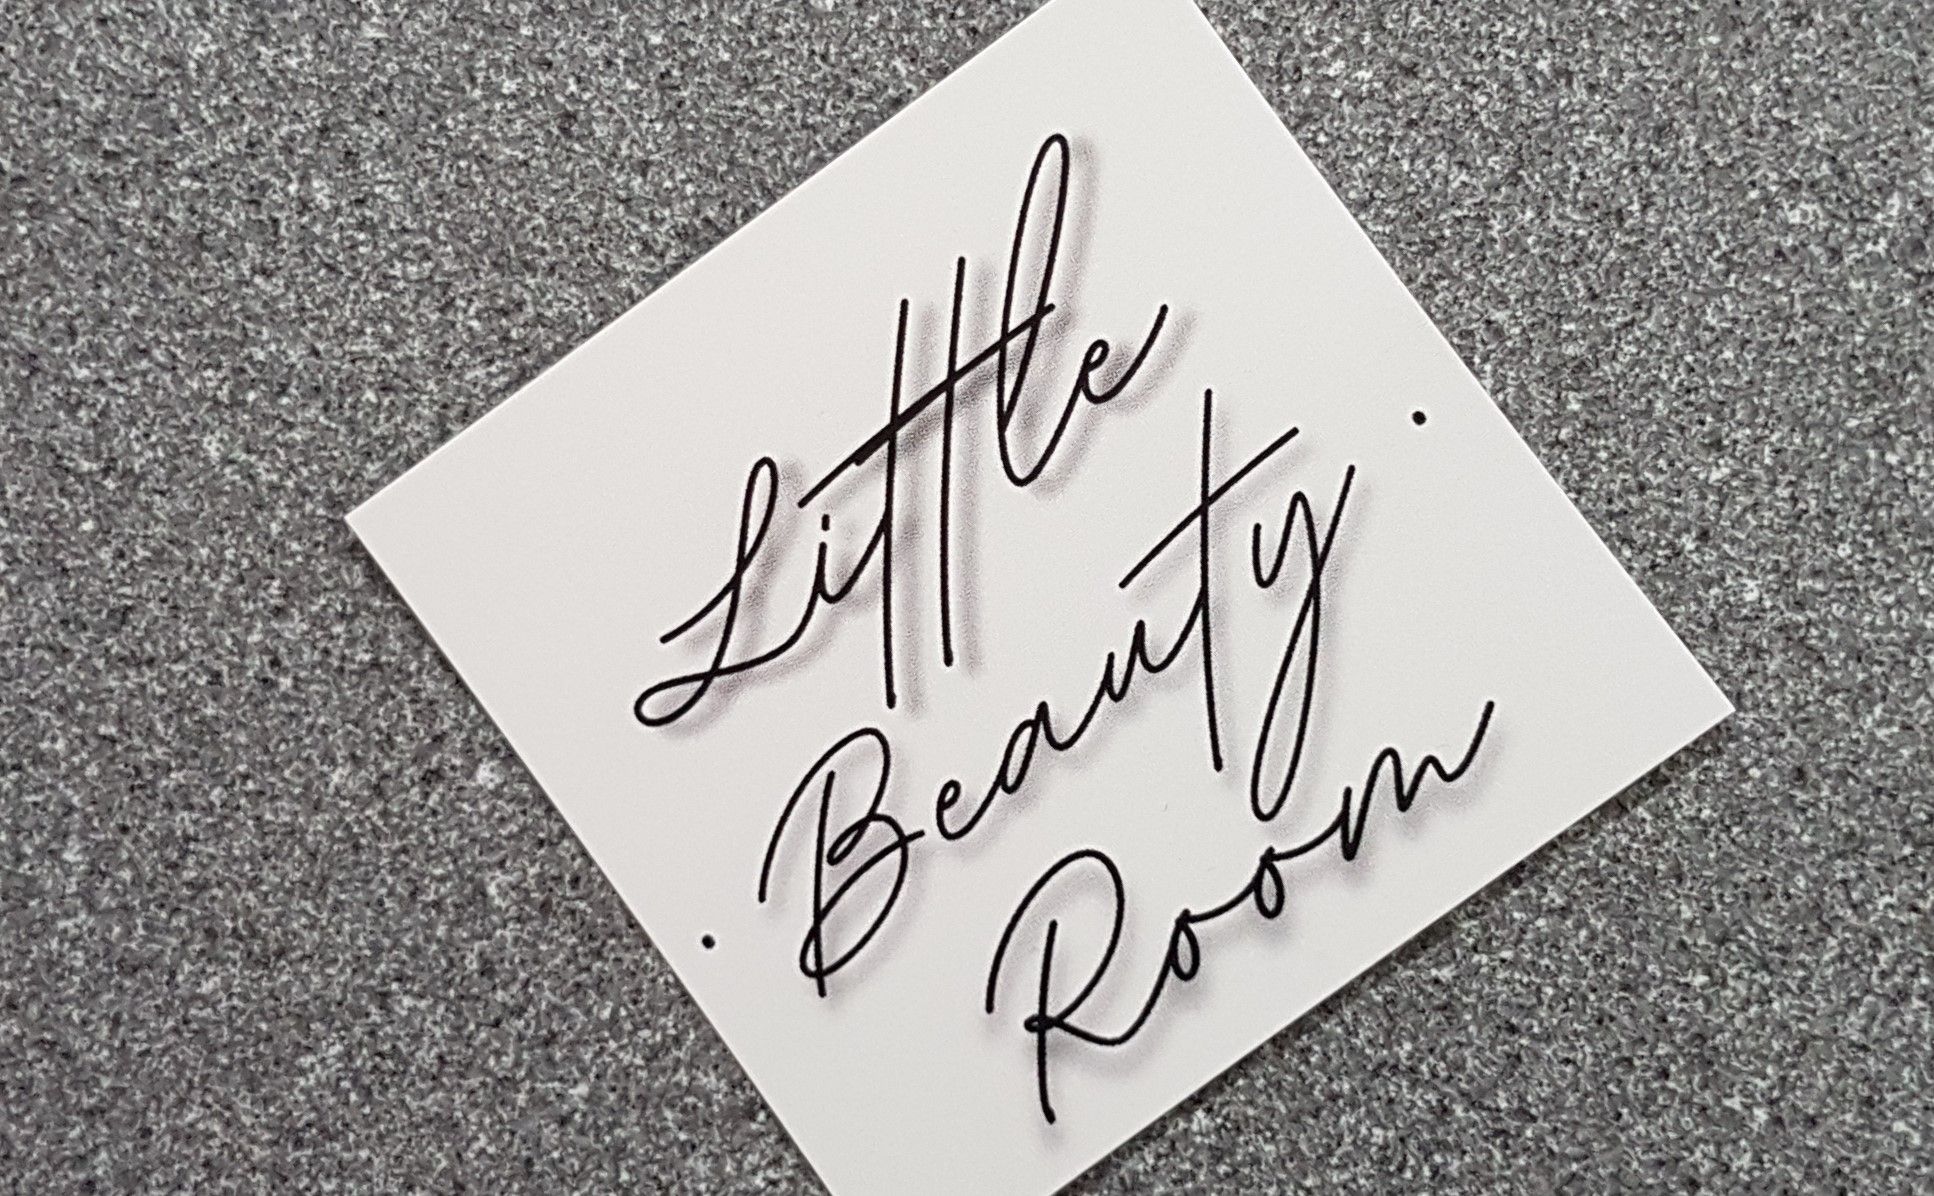 Little
· Beauty ·
Room